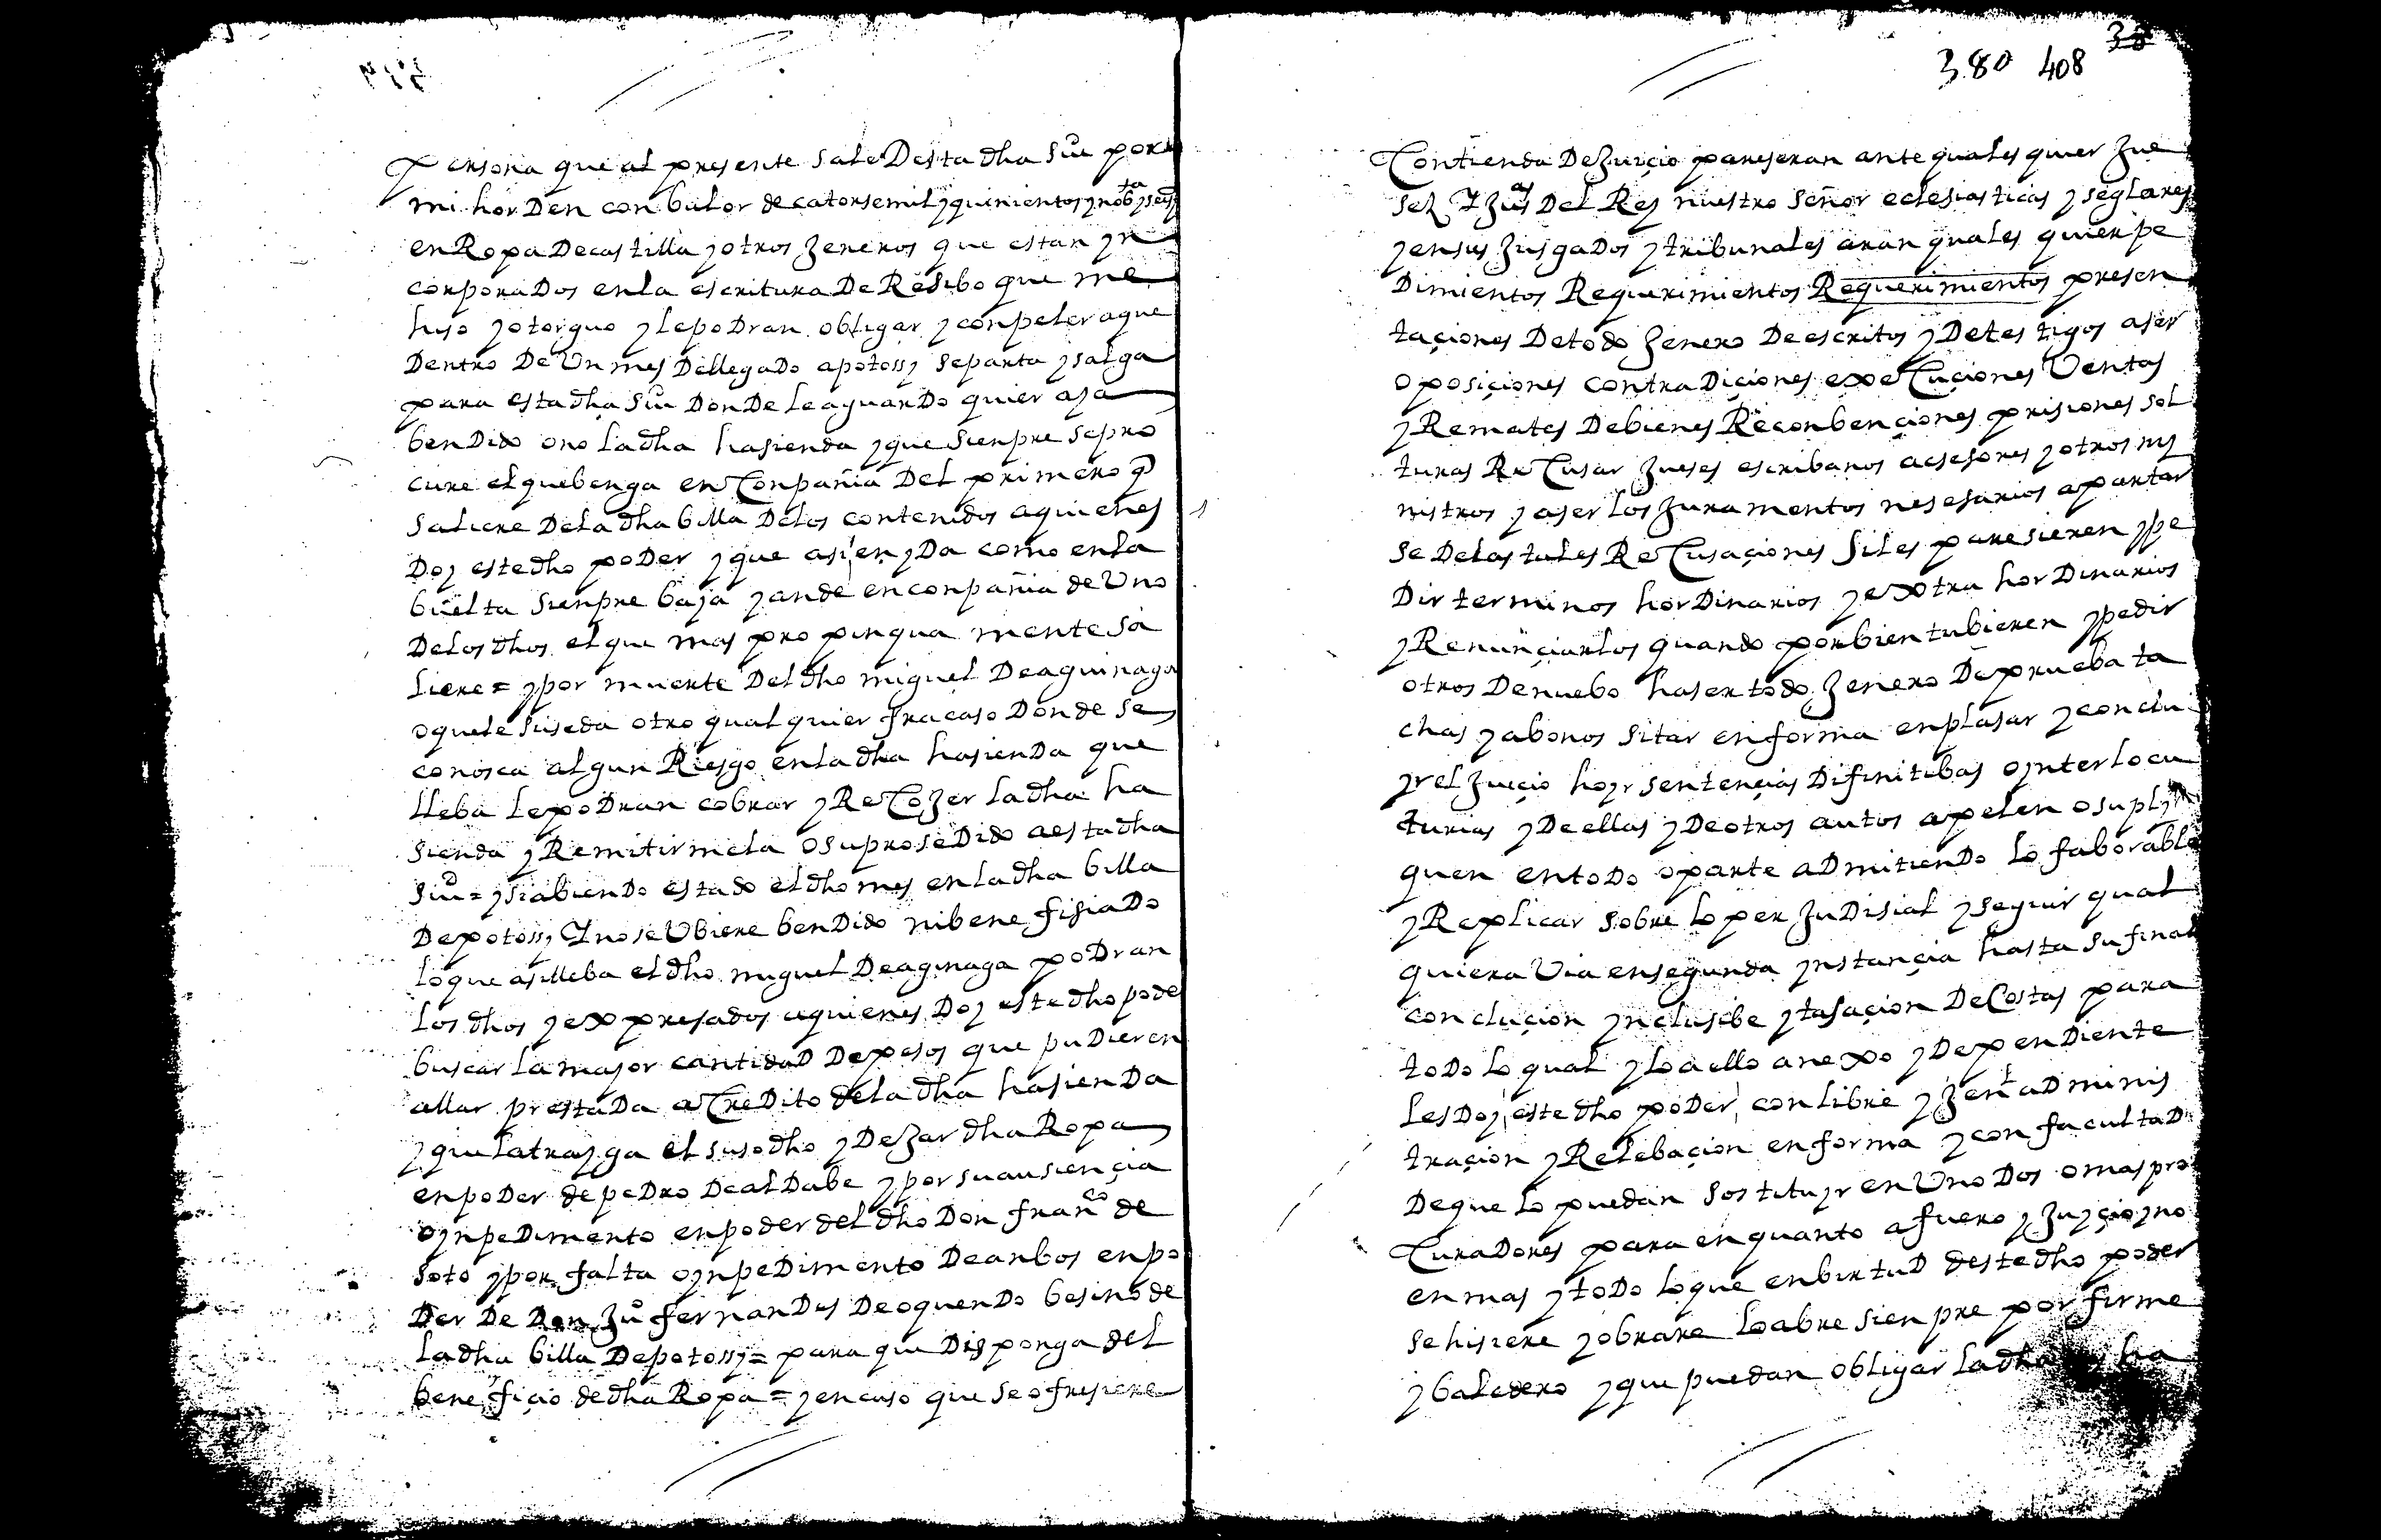 Persona que al presente sale Desta dha Siu por
mi horDen con balor de catorsemil y quinientos y nobta y seis
en Ropa De castilla y otros Jeneros que estan yn
corporaDos en la escritura De Resibo que me
hiso y otorguo y le poDran obligar y conpeler a que
Dentro De Un mes Del llegaDo a potossy se parta y salga
para esta dha Siu DonDe le aguarDo quier aya
benDido o no la dha hasienda y que sienpre se pro
cure el que benga en Conpañia Del primero q
saliere De la dha billa De los contenidos a quienes
Doy este dho poDer y que asi en yDa como en la
buelta sienpre baja y ande en conpañia de Uno
De los dhos el que mas propinqua mente sa
liere = y por muerte Del dho miguel De aguinaga
o que le suseda otro qual quier fracaso Donde se
conosca algun Riesgo en la dha hasienDa que
lleba le poDran cobrar y ReCoJer la dha ha
sienda y Remitirmela o su proseDido a esta dha
Siu = y si abienDo estado el dho mes en la dha billa
De potossy Y no se Ubiere benDido ni bene fisiaDo
lo que asi lleba el dho miguel De aginaga poDran
los dhos y expresados a quienes Doy este dho pode
buscar la mayor cantidaD De pesos que puDieren
allar prestaDa a CreDito de la dha hasienDa
y que la trayga el susodho y DeJar dha Ropa
en poDer de peDro De alDabe y por su ausiençia
o ynpeDimento en poder del dho Don franco de
soto y por falta o ynpeDimento De anbos en po
Der De Don Juo fernanDes De oquenDo besino de
la dha billa De potossy = para que Disponga del
benefiçio de dha Ropa = y en caso que se ofresiere
380 408 38
Contienda De Juiçio pareseran ante quales quier Jue
ses Y Juas Del Rey nuestro señor eclesiasticas y seglares
y en sus JusgaDos y tribunales aran quales quier pe
Dimientos Requerimientos Requerimientos presen
taçiones De todo Jenero De escritos y De testigos aser
oposiçiones contraDiçiones exeCuçiones Ventas
y Remates De bienes Reconbençiones prisiones sol
turas ReCusar Jueses escribanos acsesores y otros my
nistros y aser los Juramentos nesesarios apartar
se De las tales ReCusaçiones si les paresieren y pe
Dir terminos horDinarios y extra horDinarios
y Renunçiarlos quando por bien tubieren y pedir
otros De nuebo haser todo Jenero De prueba ta
chas y abonos sitar en forma enplasar y conclu
yr el Juiçio hoyr sentençias Difinitibas o ynterlocu
turias y De ellas y De otros autos apelen o suply
quen en toDo o parte aDmitienDo lo faborable
y Replicar sobre lo perJuDisial y seguir qual
quiera Via en segunda ynstançia hasta su final
concluçion ynclusibe y tasaçion De Costas para
toDo lo qual y lo a ello anexo y DepenDiente
les Doy este dho poDer con libre y Jenl aDminis
traçion y Relebaçion en forma y con facultaD
De que lo puedan sostituyr en Uno Dos o mas pro
CuraDores para en quanto a fuero y Juyçio y no
en mas y toDo lo que en birtuD deste dho poder
se hisiere y obrare lo abre sienpre por firme
y baledero y que puedan obligar la dha ha